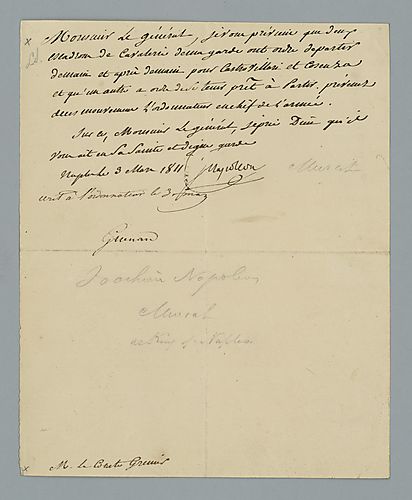 Monsieur Le général, je vous préviens que deux
escadrons de Cavalerie de ma garde ont ordre de partir
demain et après demain pour Castrovillari et Cosenza
et qu'un autre a ordre de se tenir prêt à Partir. prévenez
de ces mouvemens L'ordonnateur en chef de l'armée.
Sur ce, Monsieur Le général, je prie Dieu qu'il
vous ait en Sa Sainte et digne garde
Naples le 3 Mars 1811
J Napoléon
Murat
écrit à l'ordonnateur le 3
Joachim Napoleon
Murat
as King of Naples
M. le Comte Grenier